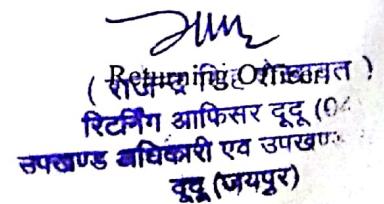 Returning Officer
( सिंह शेखावत )
रिटर्निंग आफिसर दूदू (04
उपखण्ड अधिकारी एव उपखण
दूदू (जयपुर)